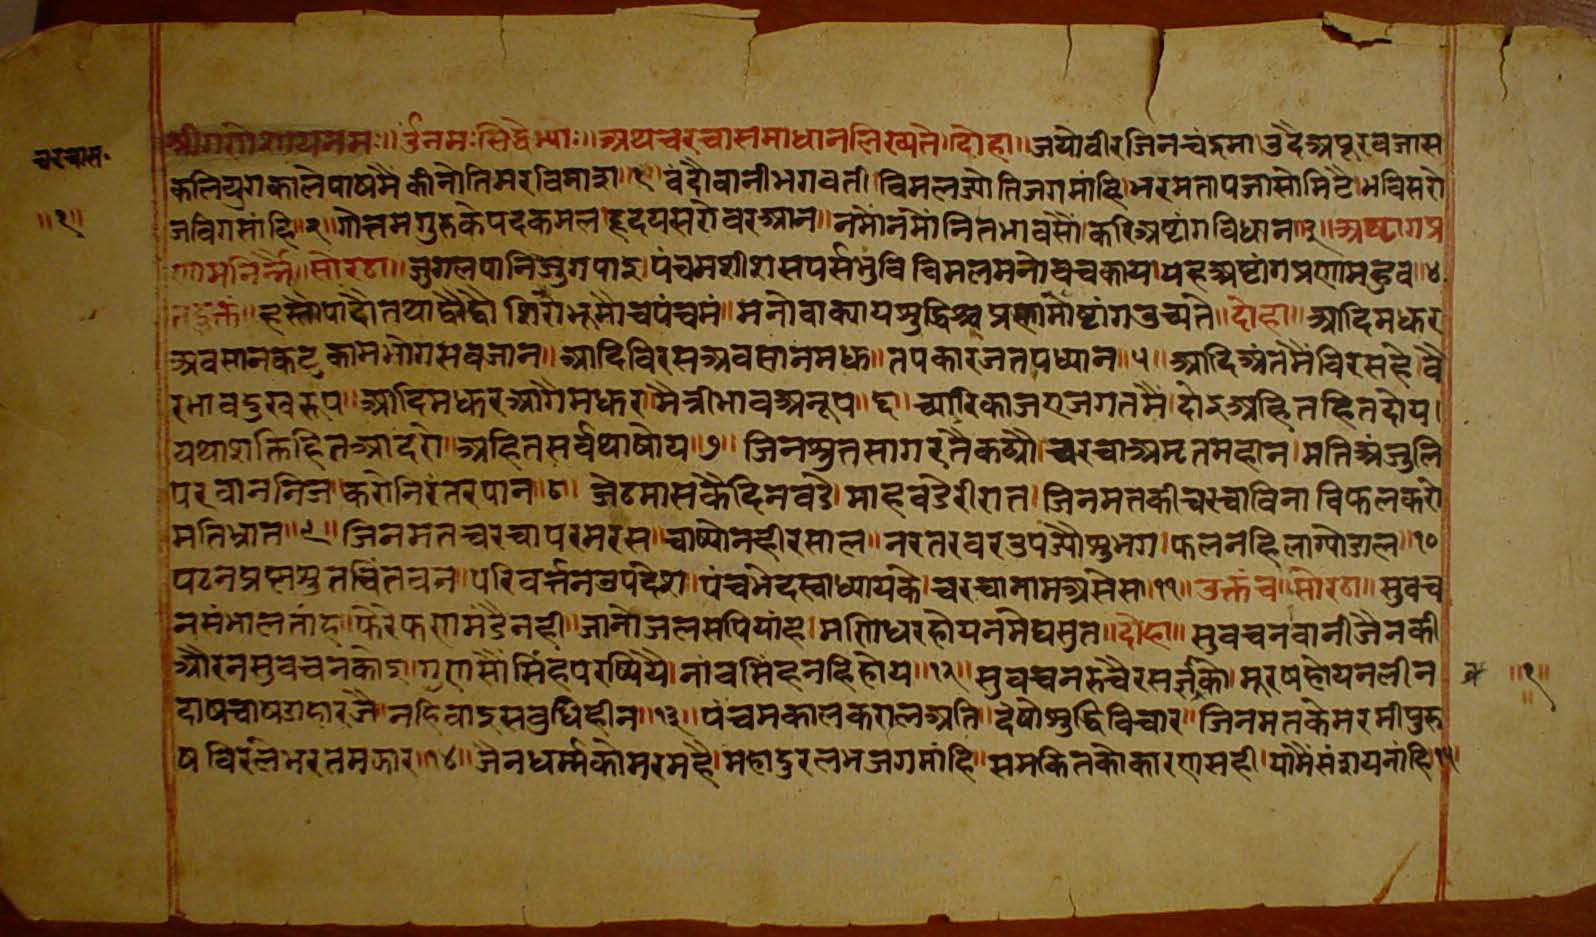 श्रीगणेशायनमः॥ उँनमःसिद्धेभ्याः॥ अथचरचासमाधानलिख्यते॥ दोहा॥ जयोवीरजिनचंद्रमा। उदैअपूरवजांस
चरचास॰
कलियुगकालेपाषमैं कीनौतिमरविनाश॥१॥ वंदौवानीभगवती। विमलज्योतिजगमांहि। भरमतापजासोमिटै। भविसरो
॥१॥
जविगसांहि॥२॥ गोत्तमगुरुकेपदकमल। हृदयसरोवरआन॥ नमोंनमोंनितभावसौं। करिअष्टांगविधान॥३॥ अष्टागप्र
णामनिर्न्न॥ सोरठा॥ जुगलपानिजुगपाइ। पंचमशीशसपर्सभुवि। विमलमनोवचकाय। यहअष्टांगप्रणामहुव॥४
तदुक्तं॥ हस्तौपादौतथाद्वौद्वौ शिरोभूमौचपंचमं॥ मनोवाक्यायशुद्धिश्च प्रणामोष्टांगउच्यते॥ दोहा॥ आदिमधुर
अवसानकटु। कामभोगसबजान॥ आदिविरसअवसानमधु॥ तपकारजतपध्यान॥५॥ आदिअंतमैंविरसहै। वै
रभावदुखरूप॥ आदिमधुरआगैमधुर। मैत्रीभावअनूप॥६॥ च्यारिकाजएजगतमैं। दोइअहितहितदोय।
यथाशक्तिहितआदरो। अहितसर्वथाषोय॥७॥ जिनश्रुतसागरतैकढ्यौ। चरचाअमृतमहान। मतिअंजुलि
परवाननिज। करोनिरंतरपान॥८॥ जेठमासकैदिनवडे। माहवडेरीरात। जिनमतकीचरचाविना। विफलकरो
मतिभ्रात॥९॥ जिनमतचरचापरमरस॥ चाष्योनहीरसाल॥ नरतरवरउपज्यौसुभग। फलनहिलाग्योडाल॥१०
पठनप्रश्नश्रुतचिंतवन। परिवर्त्तनउपदेश। पंचभेदस्वाध्यायके। चरचानामअसेस॥११॥ उक्तंच॥ सोरठा॥ सुवच
नसंभालतांह। फेरेफणामंडैनही॥ जानोजलसपियांह। मणिधरहोयनमेघसुत॥ दोहा॥ सुवचनवानीजैनकी
औरनसुवचनकोइ। गुणसौंसिंहपरष्यियै। नांवसिंहनहिहोय॥१२॥ सुवचनरुचैरसज्ञको। मूरषहोयनलीन
॥१॥
दाषचाषग्रहारजै। नहिवाइसबुधिहीन॥१३॥ पंचमकालकरालअति। देषोशुद्धिविचार। जिनमतकेमरमीपुरु
षविरलेभरतमझार॥१४॥ जैनधर्म्मकोमरमहै। महादुरलभजगमांहि॥ समकितकौकारणसही। यामैंसंशयनांहि॥१५॥